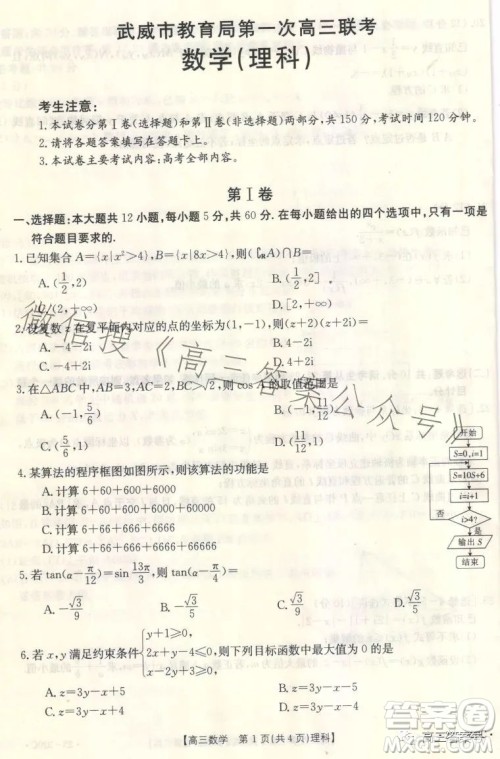 武威市教育局第一次高三联考
数学(理科)
考生注意:
1.本试卷分第Ⅰ卷(选择题)和第Ⅱ卷(非选择题)两部分,共150分,考试时间120分钟。
2.请将各题答案填写在答题卡上。
3.本试卷主要考试内容:高考全部内容。
第Ⅰ卷
一、选择题:本大题共12小题,每小题5分,共60分.在每小题给出的四个选项中,只有一项是
符合题目要求的.
1.已知集合A={x|x²>4},B={x|8x>4},则(∁RA)∩B=
A.(1/2,2) B.(1/2,2]
C.(2,+∞) D.[2,+∞)
2.设复数z在复平面内对应的点的坐标为(1,-1),则(z-2)(z+2)=
A.-4-2i B.-4+2i
C.4-2i D.4+2i
3.在△ABC中,AB=3,AC=2,BC>√2,则cos A的取值范围是
A.(-1,5/6) B.(-1,11/12)
C.(5/6,1) D.(11/12,1)
4.某算法的程序框图如图所示,则该算法的功能是
A.计算6+60+600+6000
B.计算6+60+600+6000+60000
C.计算6+66+666+6666
D.计算6+66+666+6666+66666
开始
S=0,i=1
S=10S+6
i=i+1
否
i>4?
是
输出S
结束
5.若tan(α-π/12)=sin 13π/3,则tan(α-
A.-√3/9 B.-√3/5 C.√3/9 D.√3/5
6.若x,y满足约束条件{y+1≥0, 2x-y-4≤0, 2x+3y≥0,则下列目标函数中最大值为0的是
A.z=3y-x+5 B.z=3y-x-5
C.z=3y-x+4 D.z=3y-x-4
【高三数学 第1页(共4页)理科】
微信搜《高三答案公众号》
高三答案君
答案圈
MXQE.COM